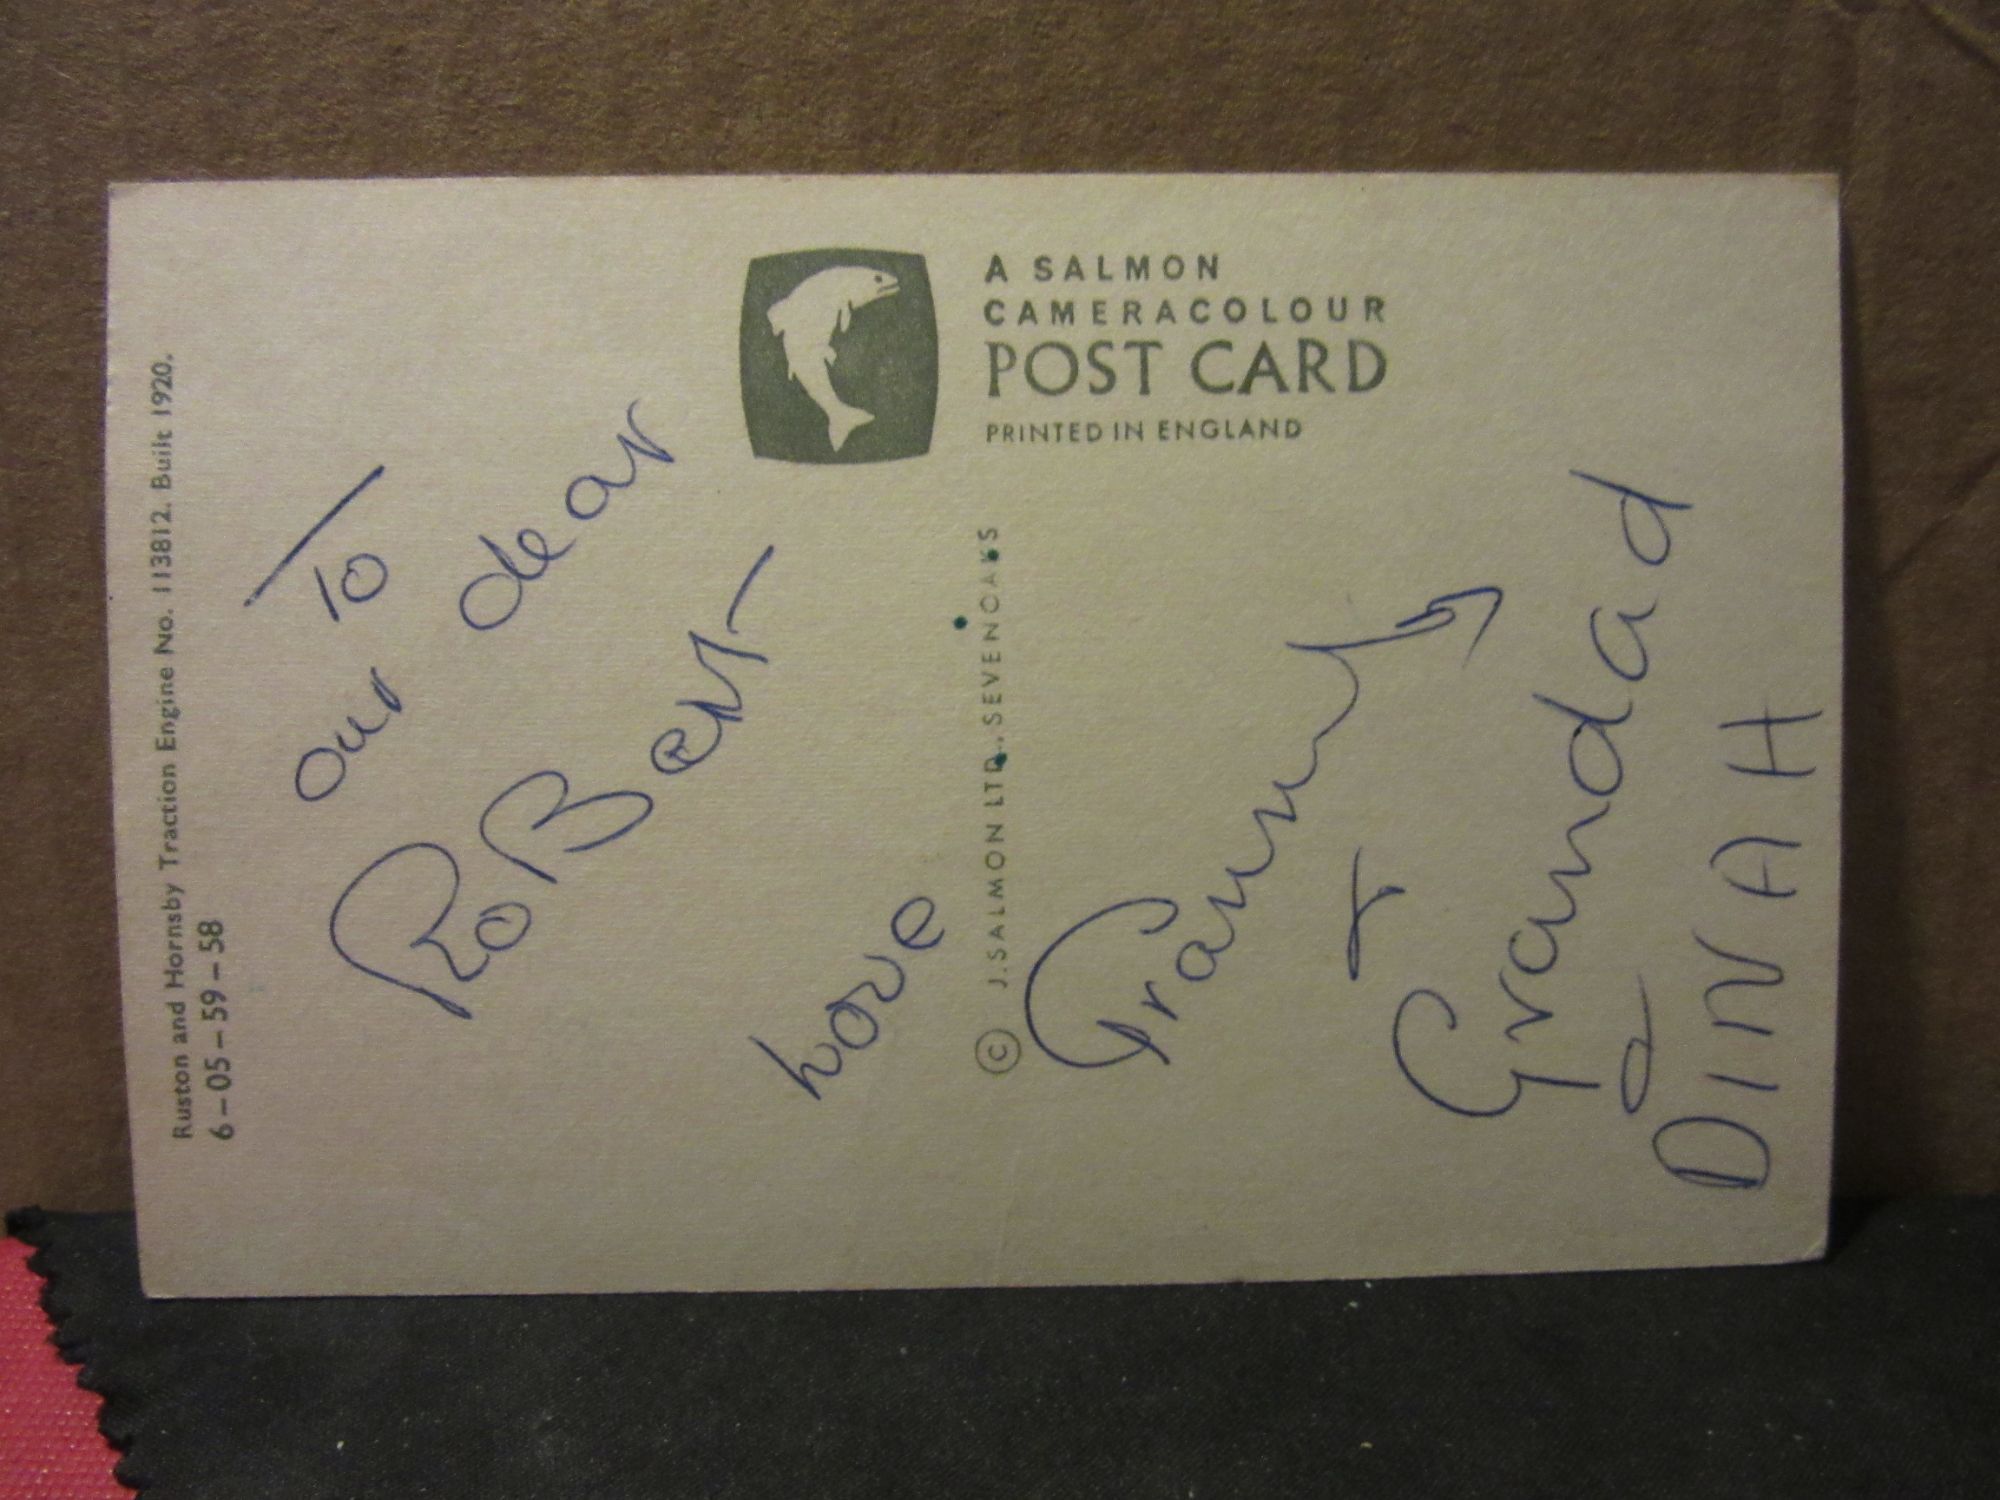 Ruston and Hornsby Traction Engine No. 113812. Built 1920.
6-05-59-58
A SALMON
CAMERACOLOUR
POST CARD
PRINTED IN ENGLAND
© J. SALMON LTD., SEVENOAKS
To
our dear
RoBert
Love
Granny
+
Grandad
DINAH